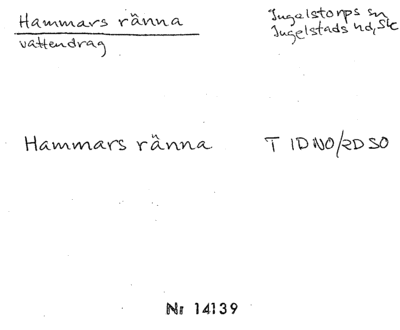 Hammars ränna
vattendrag
Ingelstorps sn
Ingelstads hd, Sk
Hammars ränna
T 1D NO/2D SO
Nr 14139